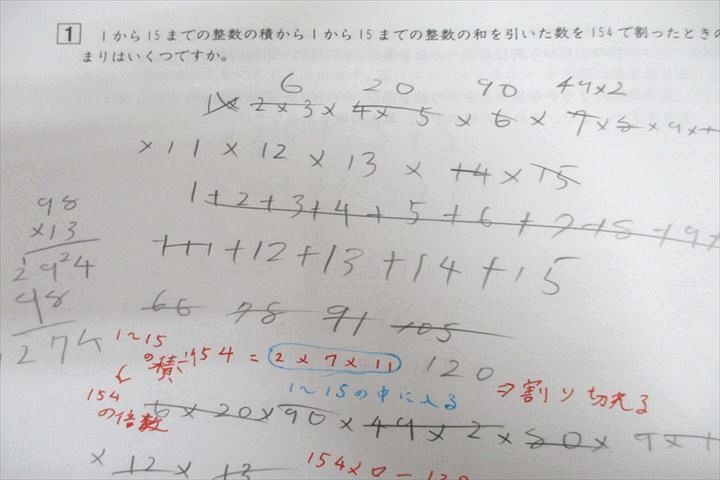 1 1から15までの整数の積から1から15までの整数の和を引いた数を154で割ったときの
まりはいくつですか。
6 20 90 49×2
1×2×3×4×5×6×7×8×9×
×11×12×13×14×15
1+2+3+4+5+6+7+8+9+
+11+12+13+14+15
98
×13
294
98
1274
66 78 91 105
120
1〜15の積÷154=2×7×11
1〜15の中に入る
⇒割り切れる
154の倍数
6×20×90×49×2×80×9×
×12×13